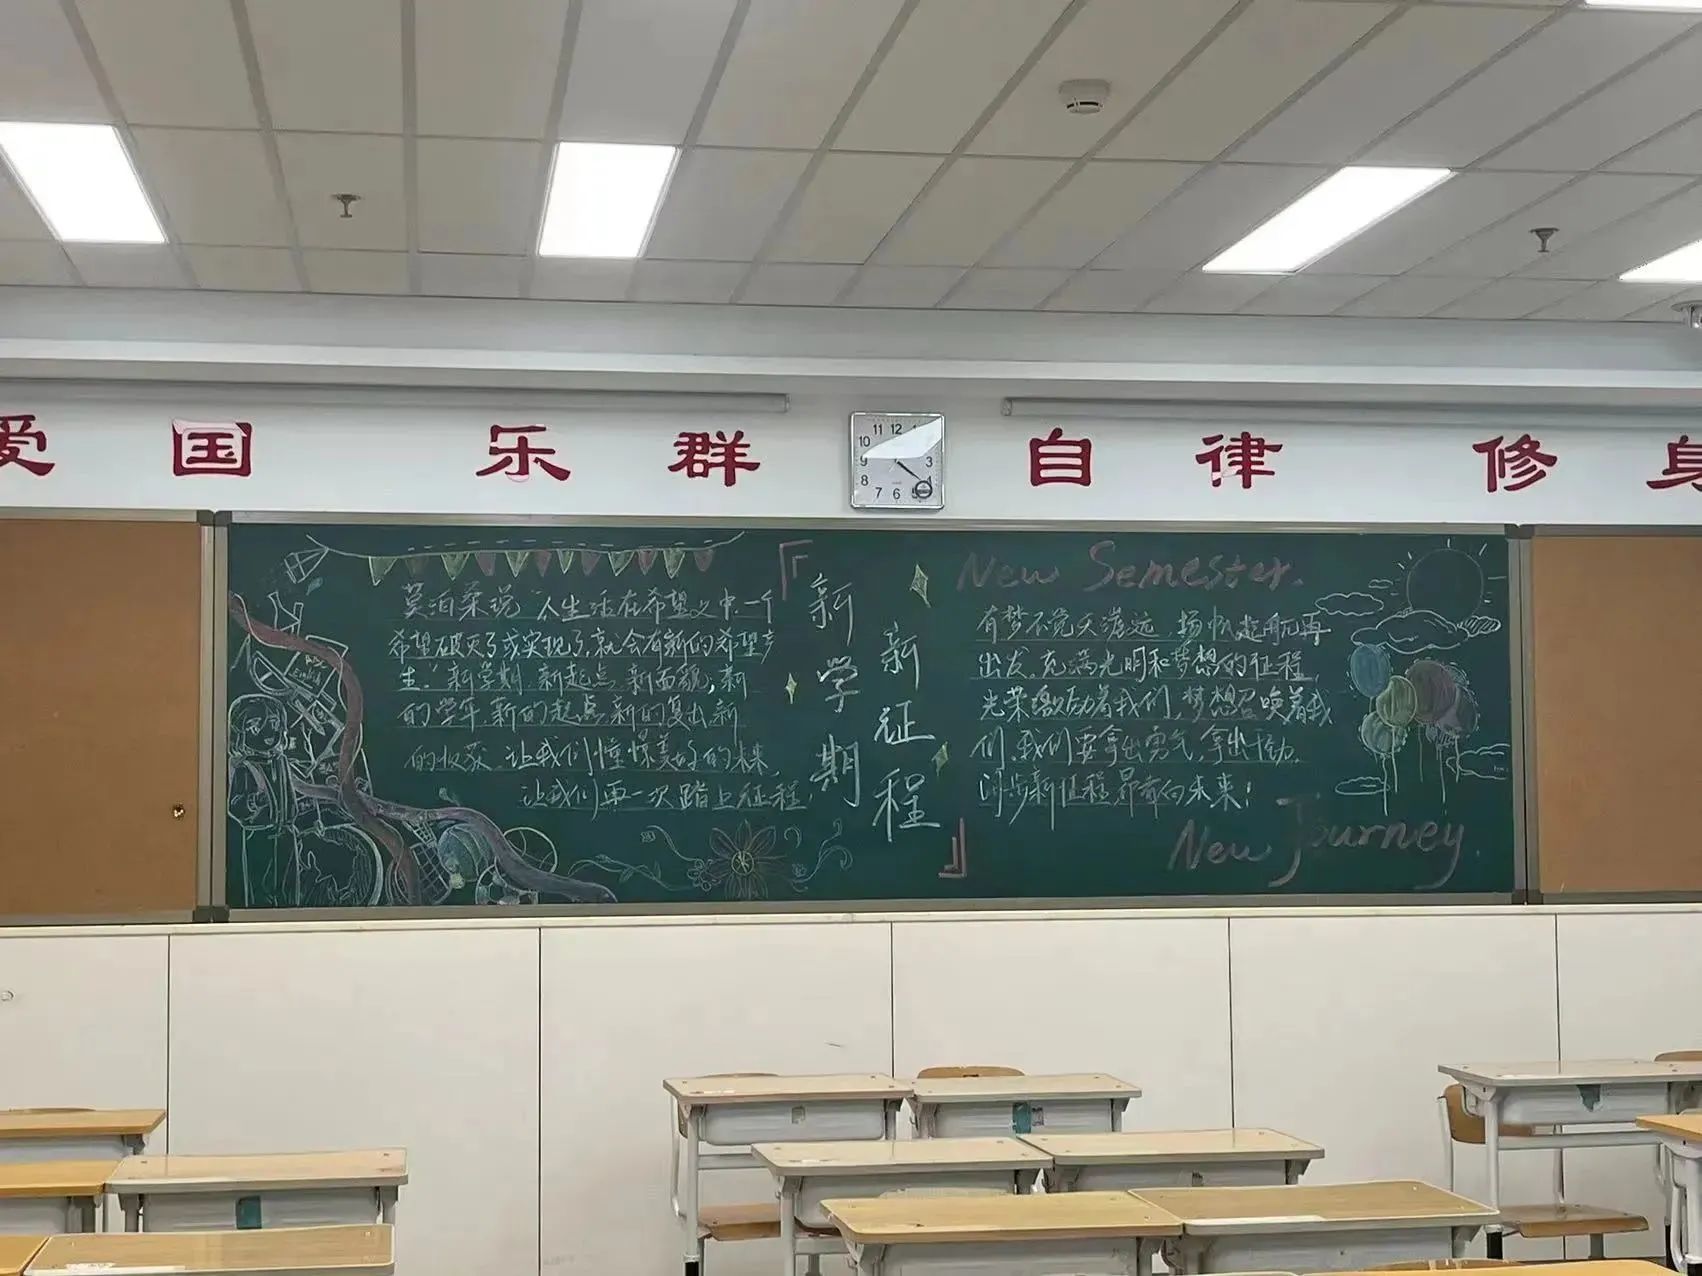 爱国 乐群 自律 修身
11 12
10
9 3
8 4
7 6 5
莫泊桑说"人生活在希望之中.一个
希望破灭了或实现了,就会有新的希望产
生."新学期,新起点,新面貌,新
的学年,新的起点,新的复出,新
的收获.让我们憧憬美好的未来,
让我们再一次踏上征程,
『新学期
新征程』
New Semester.
有梦不觉天涯远,扬帆起航再
出发.充满光明和梦想的征程,
光荣激励着我们,梦想召唤着我
们.我们要拿出勇气,拿出干劲,
阔步新征程 昂首向未来!
New Journey.
English